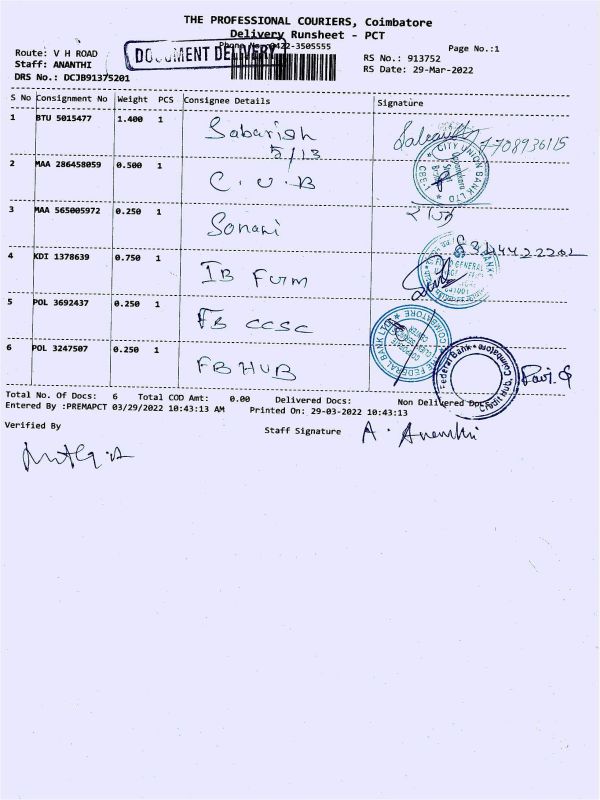 THE PROFESSIONAL COURIERS, Coimbatore
Delivery Runsheet - PCT
Phone No. 0422-3505555
Page No.:1
Route: V H ROAD
DOCUMENT DELIVERY
RS No.: 913752
Staff: ANANTHI
RS Date: 29-Mar-2022
DRS No.: DCJB91375201
S No Consignment No Weight PCS Consignee Details Signature
1 BTU 5015477 1.400 1 Sabarish 7708936115
5/13
CITY UNION BANK LTD
2 MAA 286458059 0.500 1 C.U.B
3 MAA 565005972 0.250 1 Sonari
4 KDI 1378639 0.750 1 IB Furm
5 POL 3692437 0.250 1 FB CCSC
THE FEDERAL BANK LTD COIMBATORE
6 POL 3247507 0.250 1 FB HUB Pavi.G
Federal Bank Coimbatore
Total No. Of Docs: 6 Total COD Amt: 0.00 Delivered Docs: Non Delivered Docs
Entered By :PREMAPCT 03/29/2022 10:43:13 AM Printed On: 29-03-2022 10:43:13
Verified By Staff Signature A. Ananthi